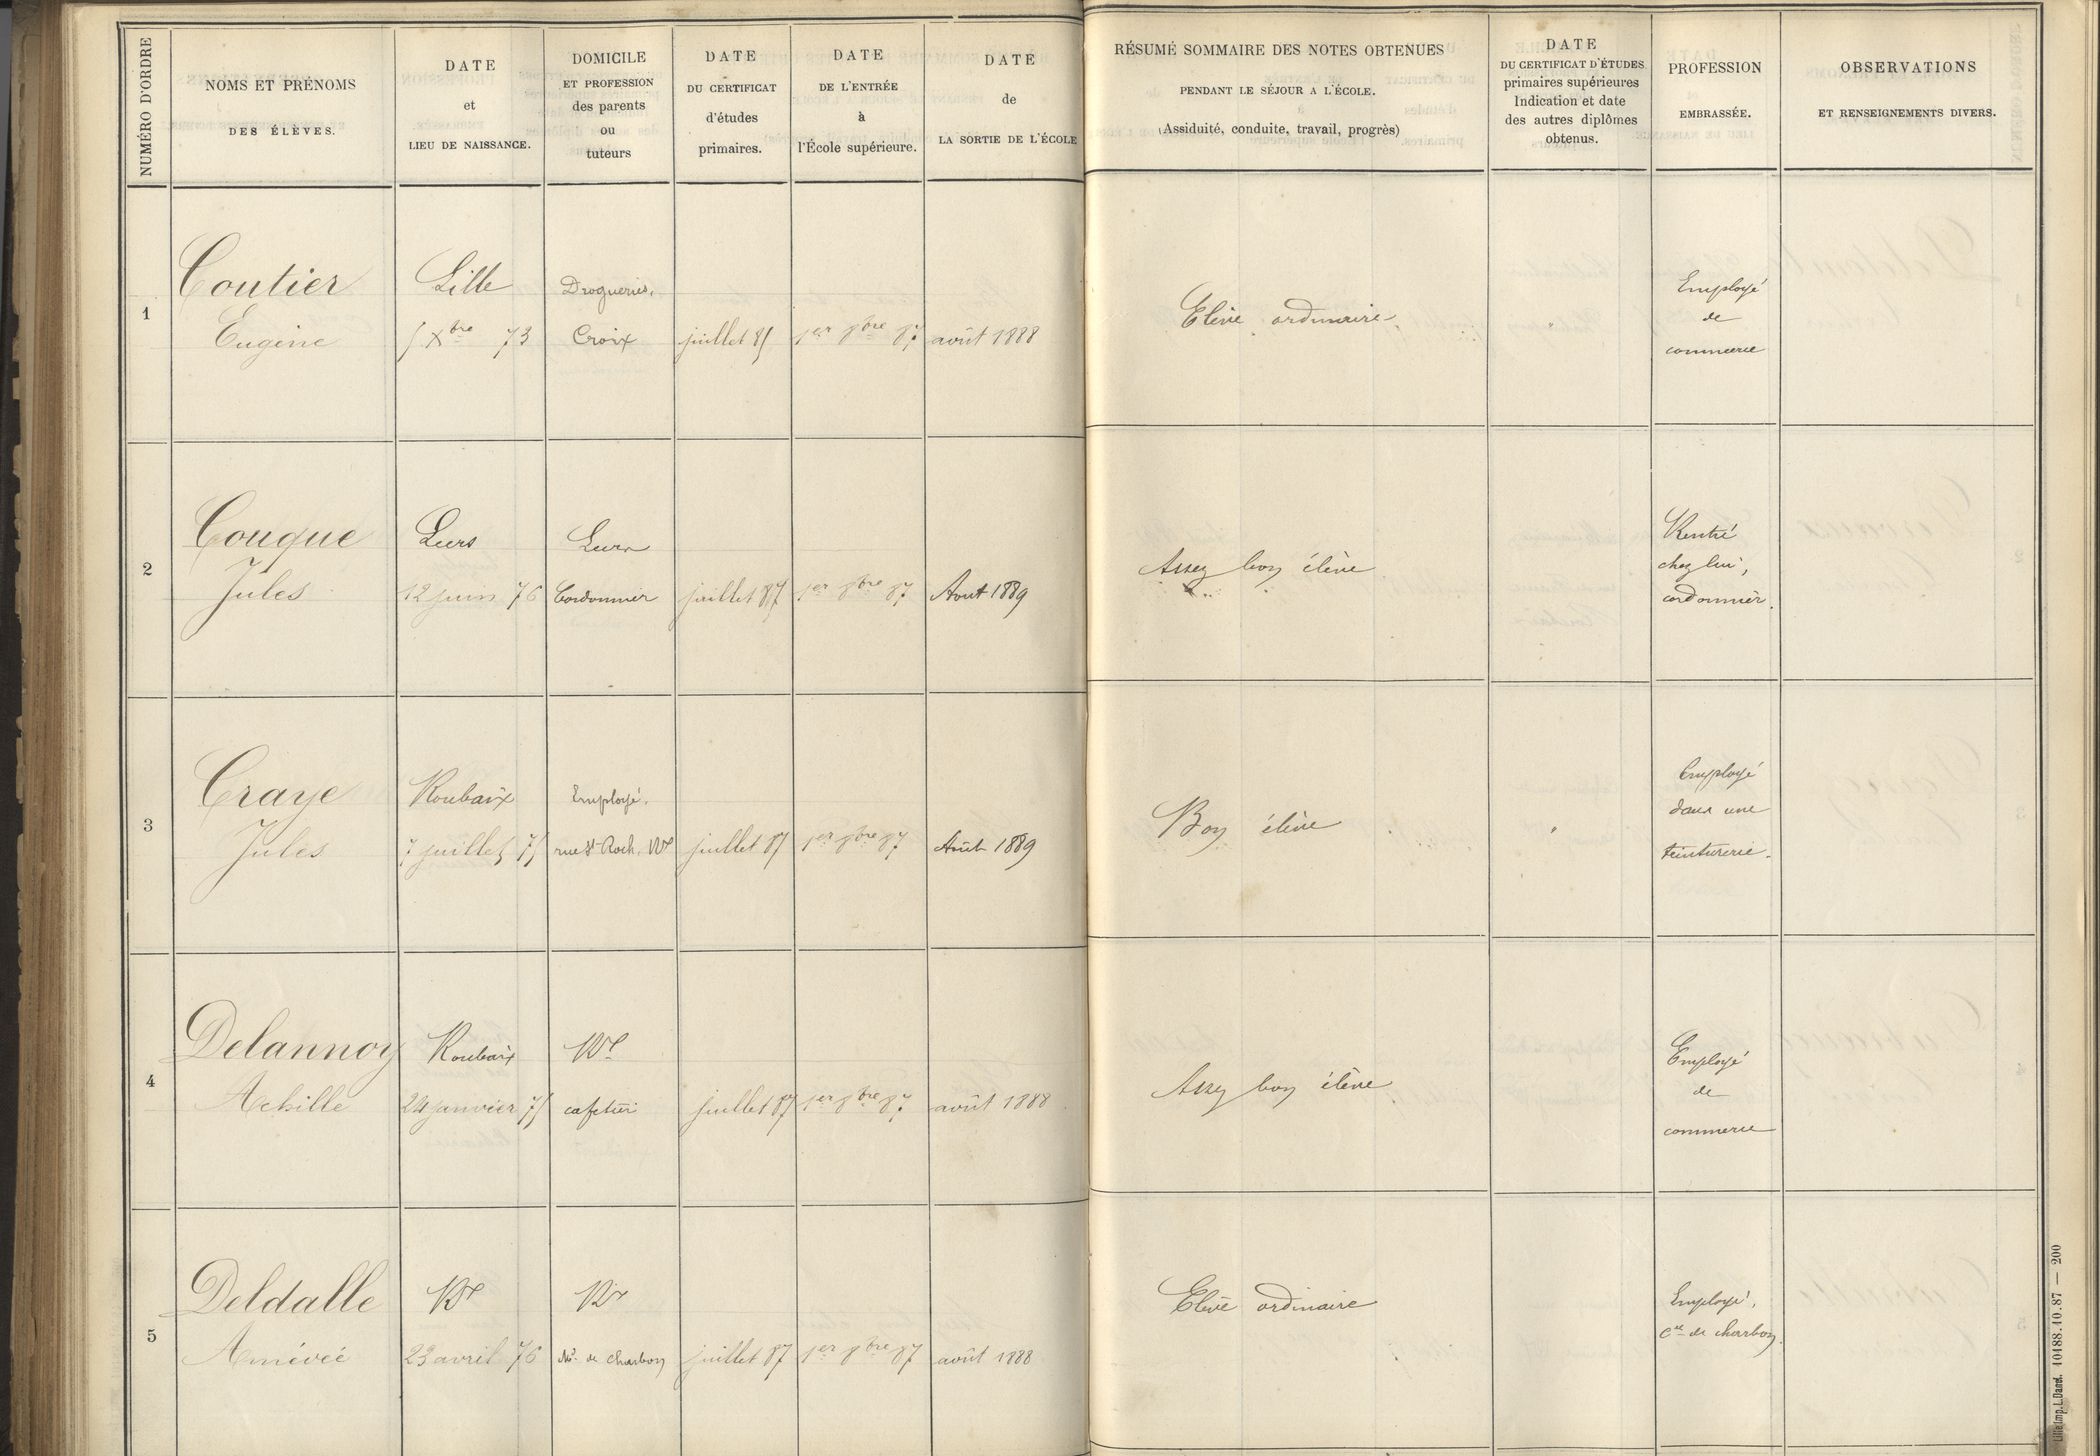 NUMÉRO D'ORDRE
NOMS ET PRÉNOMS
DES ÉLÈVES.
DATE
et
LIEU DE NAISSANCE.
DOMICILE
ET PROFESSION
des parents
ou
tuteurs
DATE
DU CERTIFICAT
d'études
primaires.
DATE
DE L'ENTRÉE
à
l'École supérieure.
DATE
de
LA SORTIE DE L'ÉCOLE
RÉSUMÉ SOMMAIRE DES NOTES OBTENUES
PENDANT LE SÉJOUR A L'ÉCOLE.
(Assiduité, conduite, travail, progrès)
DATE
DU CERTIFICAT D'ÉTUDES
primaires supérieures
Indication et date
des autres diplômes
obtenus.
PROFESSION
EMBRASSÉE.
OBSERVATIONS
ET RENSEIGNEMENTS DIVERS.
1
Coutier
Eugène
Lille
5 Xbre 73
Drogueries,
Croix
juillet 85
1er 8bre 87
août 1888
Elève ordinaire
"
Employé
de
commerce
2
Couque
Jules
Leers
12 juin 76
Leers
Cordonnier
juillet 87
1er 8bre 87
Aout 1889
Assez bon élève
Rentré
chez lui,
cordonnier.
3
Craye
Jules
Roubaix
7 juillet 75
Employé.
rue St Roch, Rx
juillet 87
1er 8bre 87
Août 1889
Bon élève
"
Employé
dans une
teinturerie.
4
Delannoy
Achille
Roubaix
24 janvier 75
Rx
cafetier
juillet 87
1er 8bre 87
août 1888
Assez bon élève
Employé
de
commerce
5
Deldalle
Amédée
Rx
23 avril 76
Rx
Md de charbon
juillet 87
1er 8bre 87
août 1888
Elève ordinaire
Employé,
Cce de charbon.
Lille Imp. L. Danel. 10188.10.87 — 200